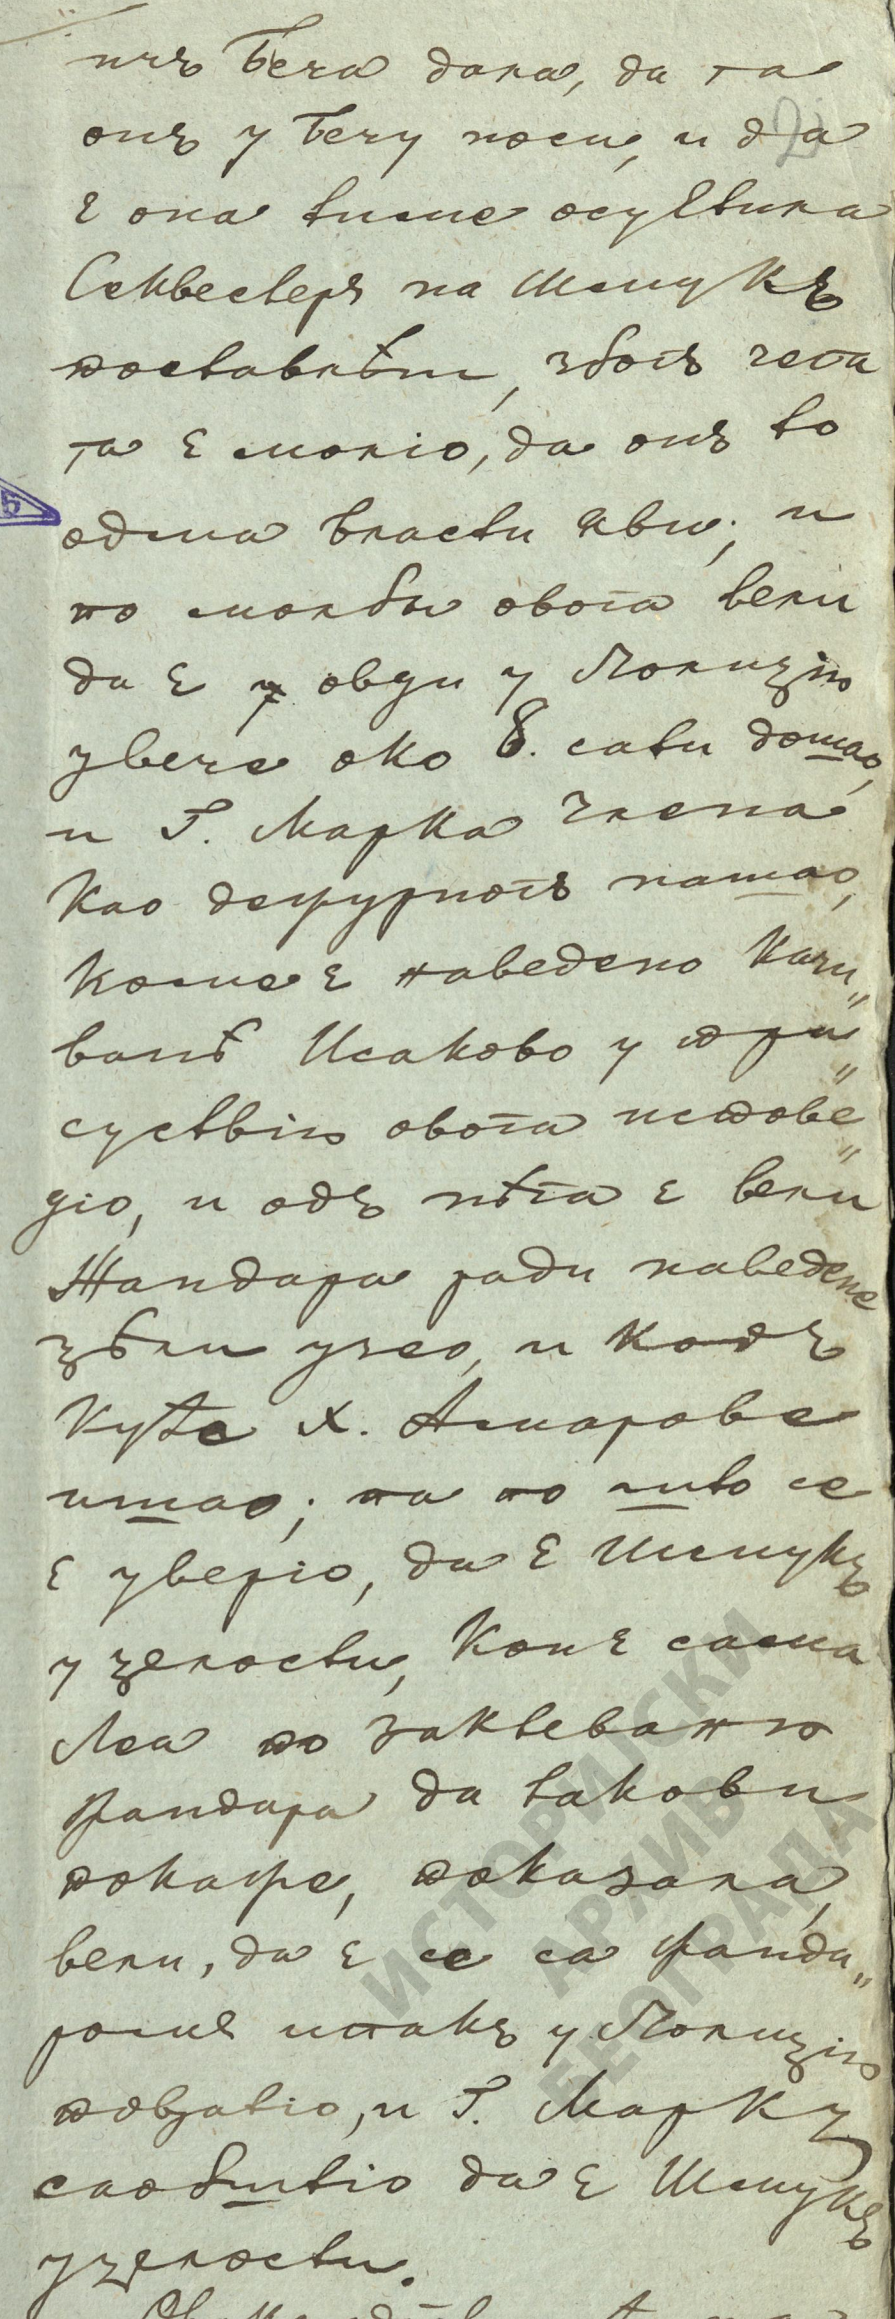 изъ Беча дала, да га
онъ у Бечу носи, и да
є она више осуєтила
Секвестеръ на Шмукъ
поставлѣни, због чега
га є молio, да онъ то
одма власти яви; и
по молби овога вели
да є у овди у Полицiю
увече око 8. сати дошао,
и Г. Марка Члена
као дежурногъ нашао,
коме є наведено кази„
ванѣ Исаково у при„
суствiю овога испове„
дiо, и одъ нѣга є вели
Жандара ради наведене
цѣли узео, и кодъ
куће Х. Амарове
ишао; па по што се
є уверiо, да є Шмукъ
у целости, кои є сама
Леа по захтевању
жандара да такови
покаже, показала,
вели, да є се са жанда„
ромъ опакъ у Полицiю
повратiо, и Г. Марку
саобштiо да є Шмукъ
у целости.